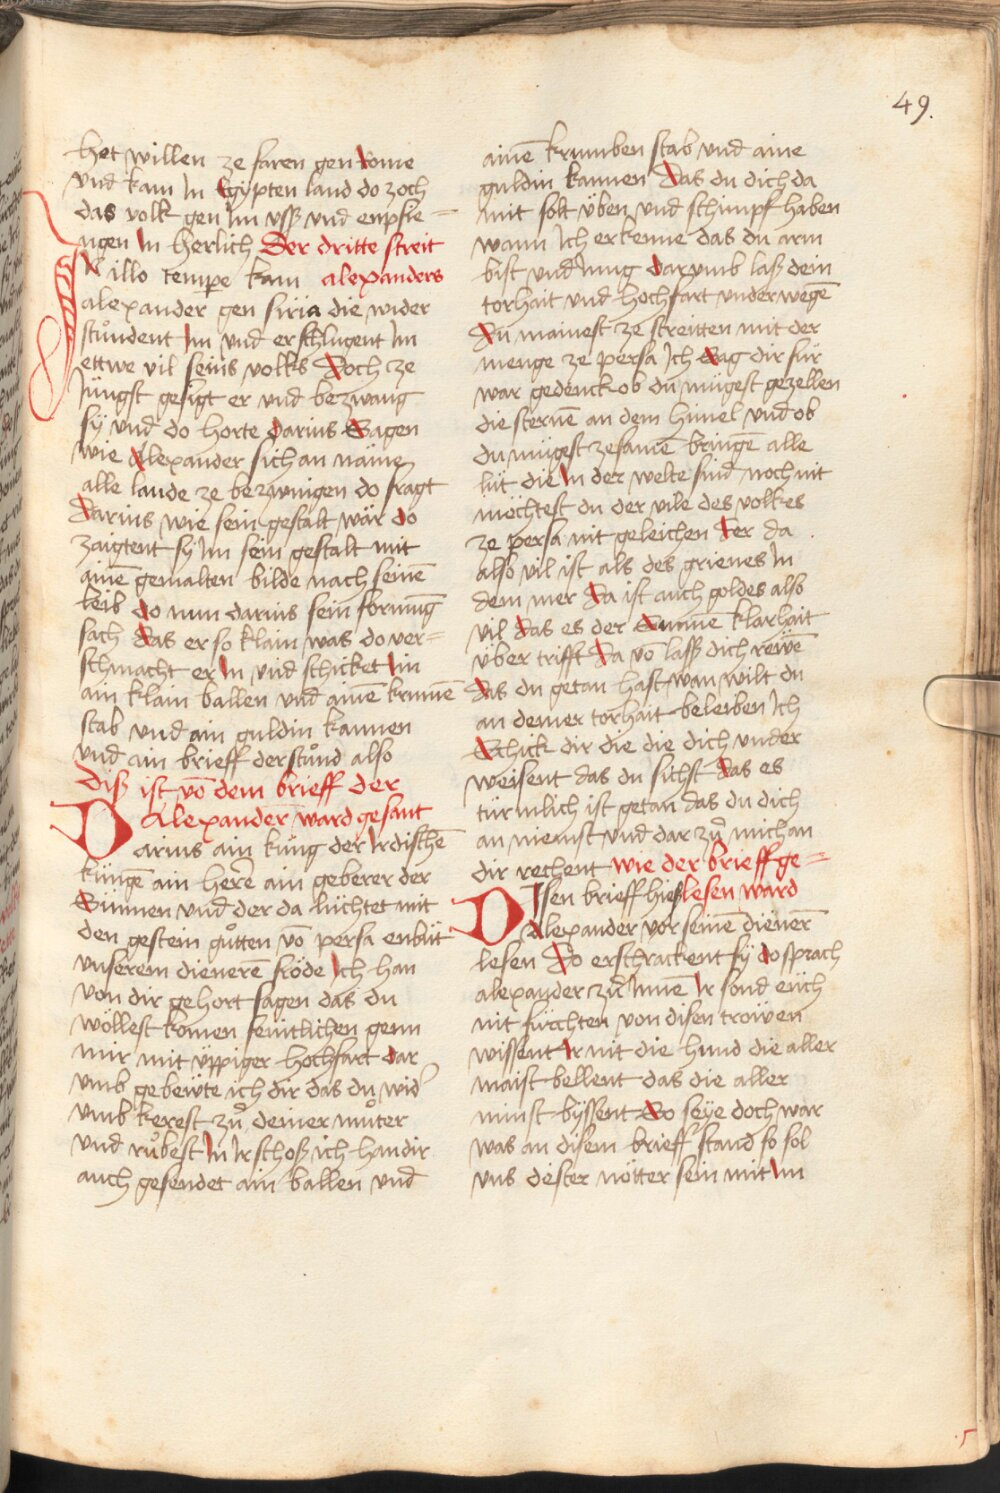 49.
het willen ze faren gen Rome
vnd kam In Egypten land do zoch
das volk gen Im vß vnd enpfie=
ngen In herlich Der dritte streit
IN illo tempe kam alexanders
alexander gen siria die wider
stůndent Im vnd erschlugent Im
ettwe vil seins volks Doch ze
Jüngst gesigt er vnd bezwang
sy vnd do horte darius Sagen
wie Alexander sich an näme
alle lande ze bezwingen do fragt
Darius wie sein gestalt wär do
zaigtent sy Im sein gestalt mit
ainē gemalten bilde nach seinē
leib do nun darius sein formūg
sach das er so klain was do ver=
schmacht er In vnd schicket im
ain klain ballen vnd ainē krumē
stab vnd ain guldin kannen
vnd ain brieff der stůnd also
diß ist vō dem brieff der
Alexandern ward gesant
Darius ain küng der Irdischē
küngē ain here ain geberer der
Sünnen vnd der da lüchtet mit
den gestein gůtten vō persa enbüt
vnserem dienerē fröde Ich han
von dir gehort sagen das du
wöllest komen senitlichen genn
mir mit üppiger hochfart dar
vmb gebeüte ich dir das du wid
vmb kerest zů deiner můter
vnd růbest In Ir schoß ich han dir
auch gesendet ain ballen vnd
ainē krumben stab vnd aine
guldin kannen Das du dich da
mit solt üben vnd schimpf haben
wann Ich erkenne das du arm
bist vnd Jung darumb laß dein
torhait vnd hochfart vnderwegē
Du mainest ze streitten mit der
menge ze persa Ich Sag dir für
war gedenck ob du mügest gezellen
die sternē an dem himel vnd ob
du mügest zesamē bringē alle
lüt die In der welte sind noch nit
möchtest du der vile des volkes
ze persa nit geleichen Der da
also vil ist als des grienes In
dem mer Da ist auch goldes also
vil das es der Sunnē klarhait
über trifft Da vō lass dich rewē
das du getan hast wan wilt du
an deiner torhait beleiben Ich
Schick dir die die dich vnder
weisent das du sichst das es
türnlich ist getan das du dich
an nimst vnd dar zů mich an
dir rechent wie der brieff ge=
Disen brieff hieß lesen ward
Alexander vor seinē dienerē
lesen Do erschrackent sy do sprach
alexander zů Innē Ir sond eüch
nit fürchten von disen troüwen
wissent Ir nit die hund die aller
maist bellent das die aller
minst byssent So seye doch war
was an disem brieff stand so sol
vns dester nötter sein mit Im